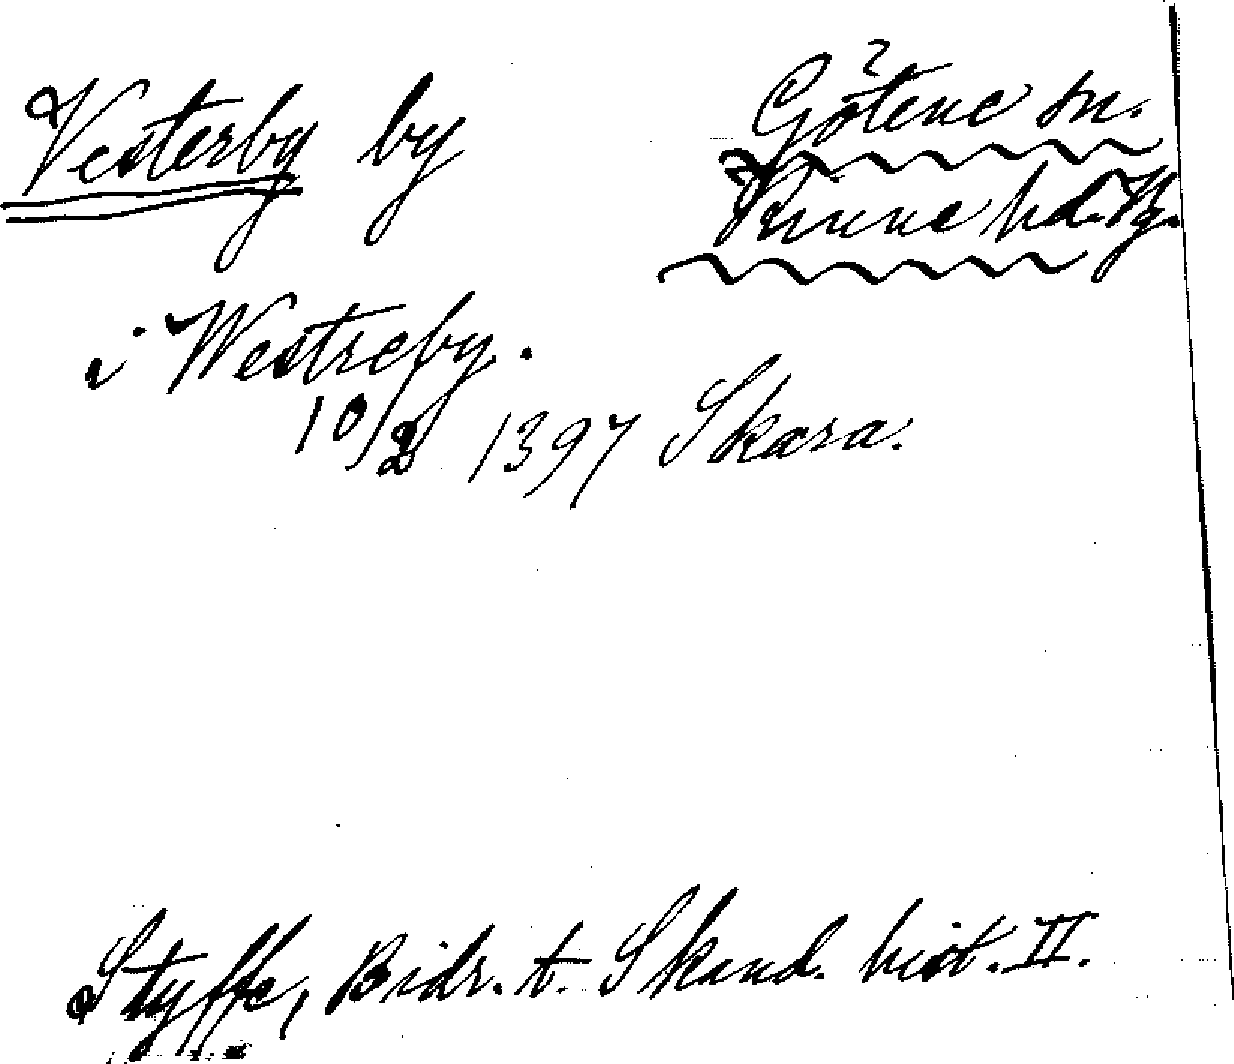 Vesterby by
Götene sn.
Kinne hd. Ry.
i Westreby.
10/2 1397 Skara.
Styffe, Bidr. t. Skand. hist. II.